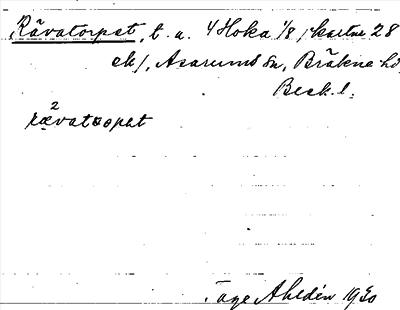 Rävatorpet, t. u. 4 Hoka 1/8 /kartne 28
ek/, Asarums sn, Bräkne hd,
Blek. l.
2
rævatoopet
Tage Ahldén 1930